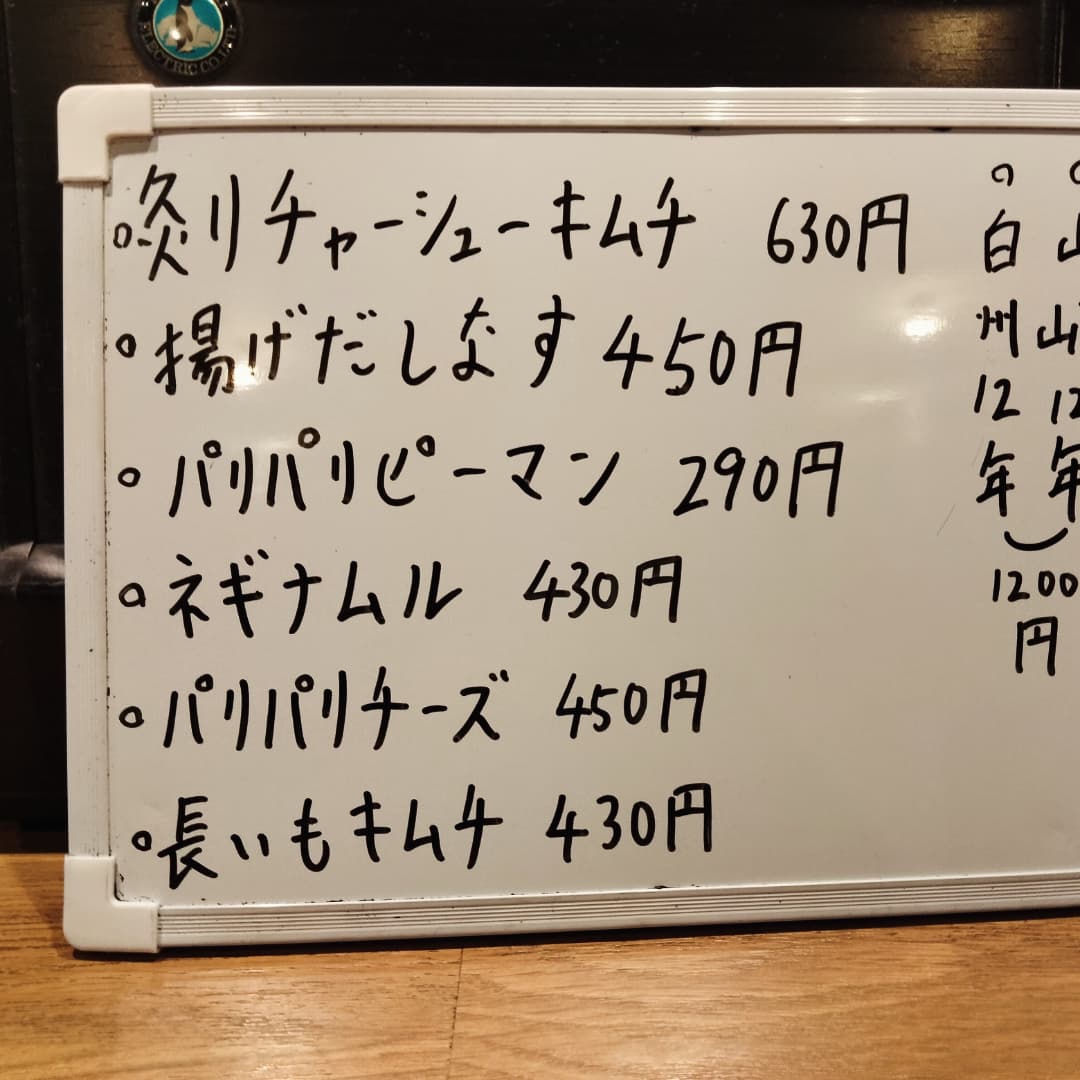 ELECTRIC CO.LTD
。炙リチャーシューキムチ 630円
。揚げだしなす 450円
。パリパリピーマン 290円
。ネギナムル 430円
。パリパリチーズ 450円
。長いもキムチ 430円
。白州12年
1200円